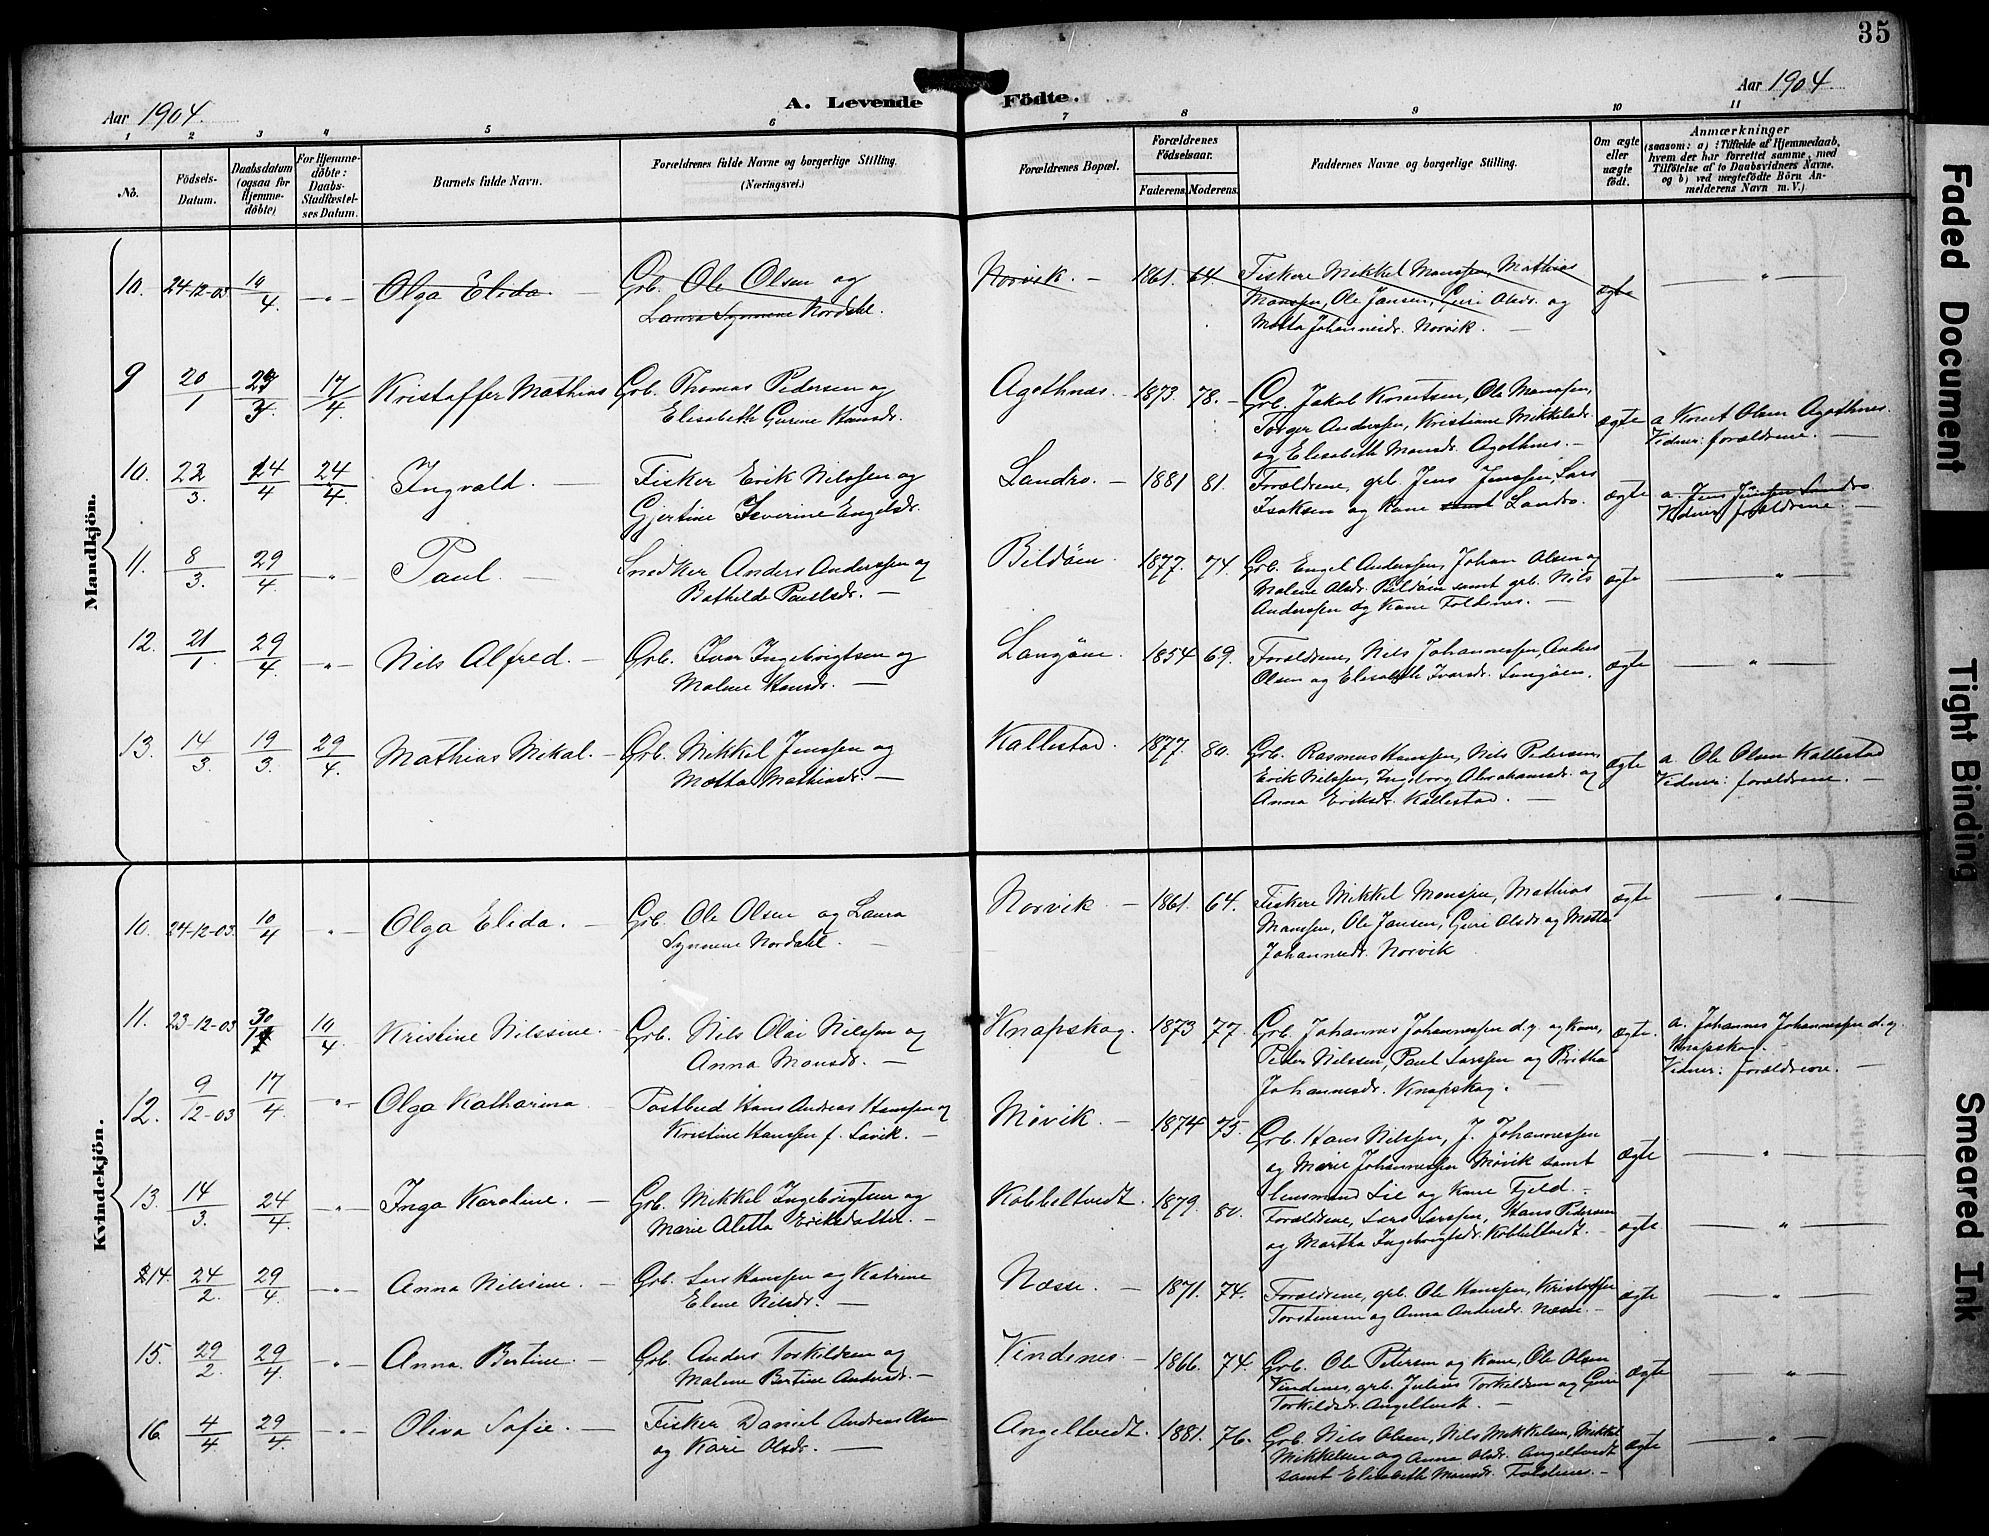 35
Aar 1904.
A. Levende Födte.
Aar 1904
1 2 3 4 5 6 7 8 9 10 11
No.
Födsels-Datum.
Daabsdatum (ogsaa for Hjemme-döbte)
For Hjemme-döbte: Daabs-Stadfæstel-ses Datum.
Barnets fulde Navn.
Forældrenes fulde Navne og borgerlige Stilling. (Næringsvei.)
Forældrenes Bopæl.
Forældrenes Födselsaar.
Faderens. Moderens.
Faddernes Navne og borgerlige Stilling.
Om ægte eller uægte födt.
Anmærkninger
(saasom: a) i Tilfælde af Hjemmedaab,
hvem der har forrettet samme, med
Tilföielse af to Daabsvidners Navne.
og b) ved uægtefödte Börn An-
melderens Navn m.V.)
Mandkjön.
10. 24-12-03 10/4. -"- Olga Elida. Grb. Ole Olsen og
Laura Synnene Nordahl.
Norvik. - 1861. 64. Fiskere Mikkel Monssen, Mathias
Monssen, Ole Jansen, Guri Olsdr. og
Metta Johannesdr. Norvik. -
ægte "
9 20/1 3 17/4. Kristoffer Mathias Grb. Thomas Pedersen og
Elisabeth Gurine Hansdr.
Agothnæs. 1873. 78. - Grb. Jakob Knutsen, Ole Monssen,
Torger Anderssen, Kristiane Mikkelsdr.
og Elisabeth Monsdr. Agothnes. -
ægte a Knut Olsen Agothnes.
Vidner: forældrene. -
10. 22/3. 14/4 24/4. Ingvald. - Fisker Erik Nilssen og
Gjertine Severine Engelsdr.
Landro. - 1881 81. Forældrene, grb. Jens Jenssen, Lars
Isaksen og Kone samt Landro.
ægte a. Jens Jenssen Landro.
Vidner: forældrene. -
11. 8/3. 29/4 -"- Paul. - Snedker Anders Anderssen og
Bothilde Paulsdr. -
Bildöen. 1877. 74. Grb. Engel Anderssen, Johan Olsen og
Malene Olsdr. Bildöen samt grb. Nils
Anderssen og Kone Foldenes. -
ægte "
12. 21/1. 29/4. -"- Nils Alfred. - Grb. Ivar Ingebrigtsen og
Malene Hansdr. -
Langöen. 1854 69. Forældrene, Nils Johannessen, Anders
Olsen og Elisabeth Ivarsdr. Langöen.
ægte "
13. 14/3. 19/3. 29/4. Mathias Mikal. - Grb. Mikkel Jenssen og
Metta Mathiasdr. -
Kallestad. 1877. 80. Grb. Rasmus Hanssen, Nils Pedersen,
Erik Nilssen, Ingeborg Abrahamsdr. og
Anna Eriksdr. Kallestad. -
ægte a. Ole Olsen Kallestad
Vidner: forældrene. -
Kvindekjön.
10. 24-12-03. 10/4 -"- Olga Elida. - Grb. Ole Olsen og Laura
Synnene Nordahl. -
Norvik. - 1861. 64. Fiskere Mikkel Monssen, Mathias
Monssen, Ole Jansen, Guri Olsdr. og Metta
Johannesdr. Norvik
ægte "
11. 23-12-03 30 10/4. Kristine Nilssine. Grb. Nils Olai Nilssen og
Anna Monsdr. -
Knapskog. 1873 77. Grb. Johannes Johannessen d.y. og Kone,
Peder Nilssen, Paul Larssen og Britha
Johannesdr. Knapskog. -
ægte. a. Johannes Johannessen d.y.
Knapskog.
Vidner: forældrene. -
12. 9/12-03 17/4. -"- Olga Katharina Postbud Hans Andreas Hanssen og
Kristine Hanssen f. Lavik. -
Mövik. - 1874 75. Grb. Hans Nilssen, J. Johannessen
og Marie Johannessen Mövik samt
lensmand Lie og Kone Fjeld. -
ægte "
13. 14/3. 24/4. -"- Inga Karoline. - Grb. Mikkel Ingebrigtsen og
Marie Aletta Eriksdatter. -
Kobbeltvedt. 1879. 80. Forældrene, Lars Larssen, Hans Pedersen
og Martha Ingebrigtsdr. Kobbeltvedt. -
ægte "
14. 24/2. 29/4. -"- Anna Nilssine. - Grb. Lars Hanssen og Katrine
Elene Nilsdr. -
Næsse. - 1871. 74. Forældrene, grb. Ole Hanssen, Kristoffer
Torstensen og Anna Andersdr. Næsse. -
ægte "
15. 29/2. 29/4. -"- Anna Bertine. - Grb. Anders Torkildsen og
Malene Bertine Andersdr. -
Vindenes. - 1866. 74. Grb. Ole Petersen og Kone, Ole Olsen
Vindenes, grb. Julius Torkildsen og Guri
Torkildsdr. Angeltvedt. -
ægte "
16. 4/4 29/4. -"- Oliva Sofie. - Fisker Daniel Andreas Olsen
og Kari Olsdr. -
Angeltvedt. 1881. 76. Grb. Nils Olsen, Nils Mikkelsen, Mikkel
Mikkelsen og Anna Olsdr. Angeltvedt
samt Elisabeth Monsdr. Foldenes. -
ægte "
Faded Document
Tight Binding
Smeared Ink